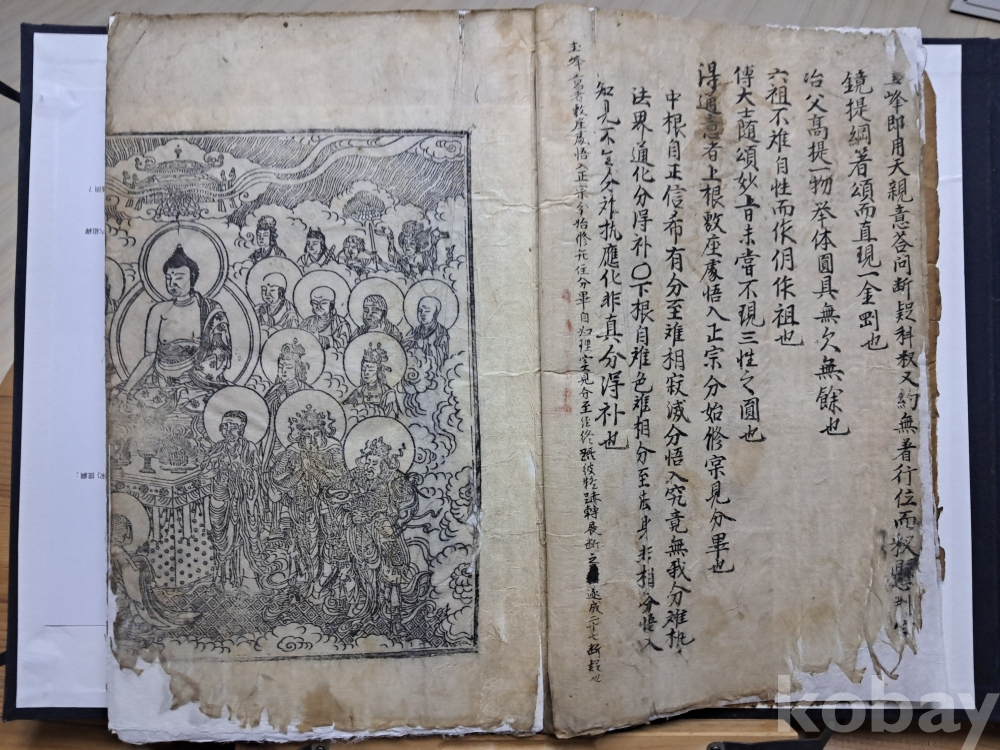 圭峰即用天親意答問斷疑科教又約無著行位而釈
鏡提綱著頌而直現一金剛也
冶父高提一物举体圓具無欠無餘也
六祖不难自性而作仴作祖也
傅大士随頌妙旨未甞不現三性之圓也
淂通意者上根敷座處悟入正宗分始修宗見分畢也
中根自正信希有分至难相寂滅分悟入究竟無我分难执
法界通化分得补〇下根自难色难相分至法身非相分悟入
知見不生分补执應化非真分得补也
圭峰意者敷座處悟入正宗分始修 住分畢自 見分至 疑 轉展断之 遂成二十七断疑也
kobay